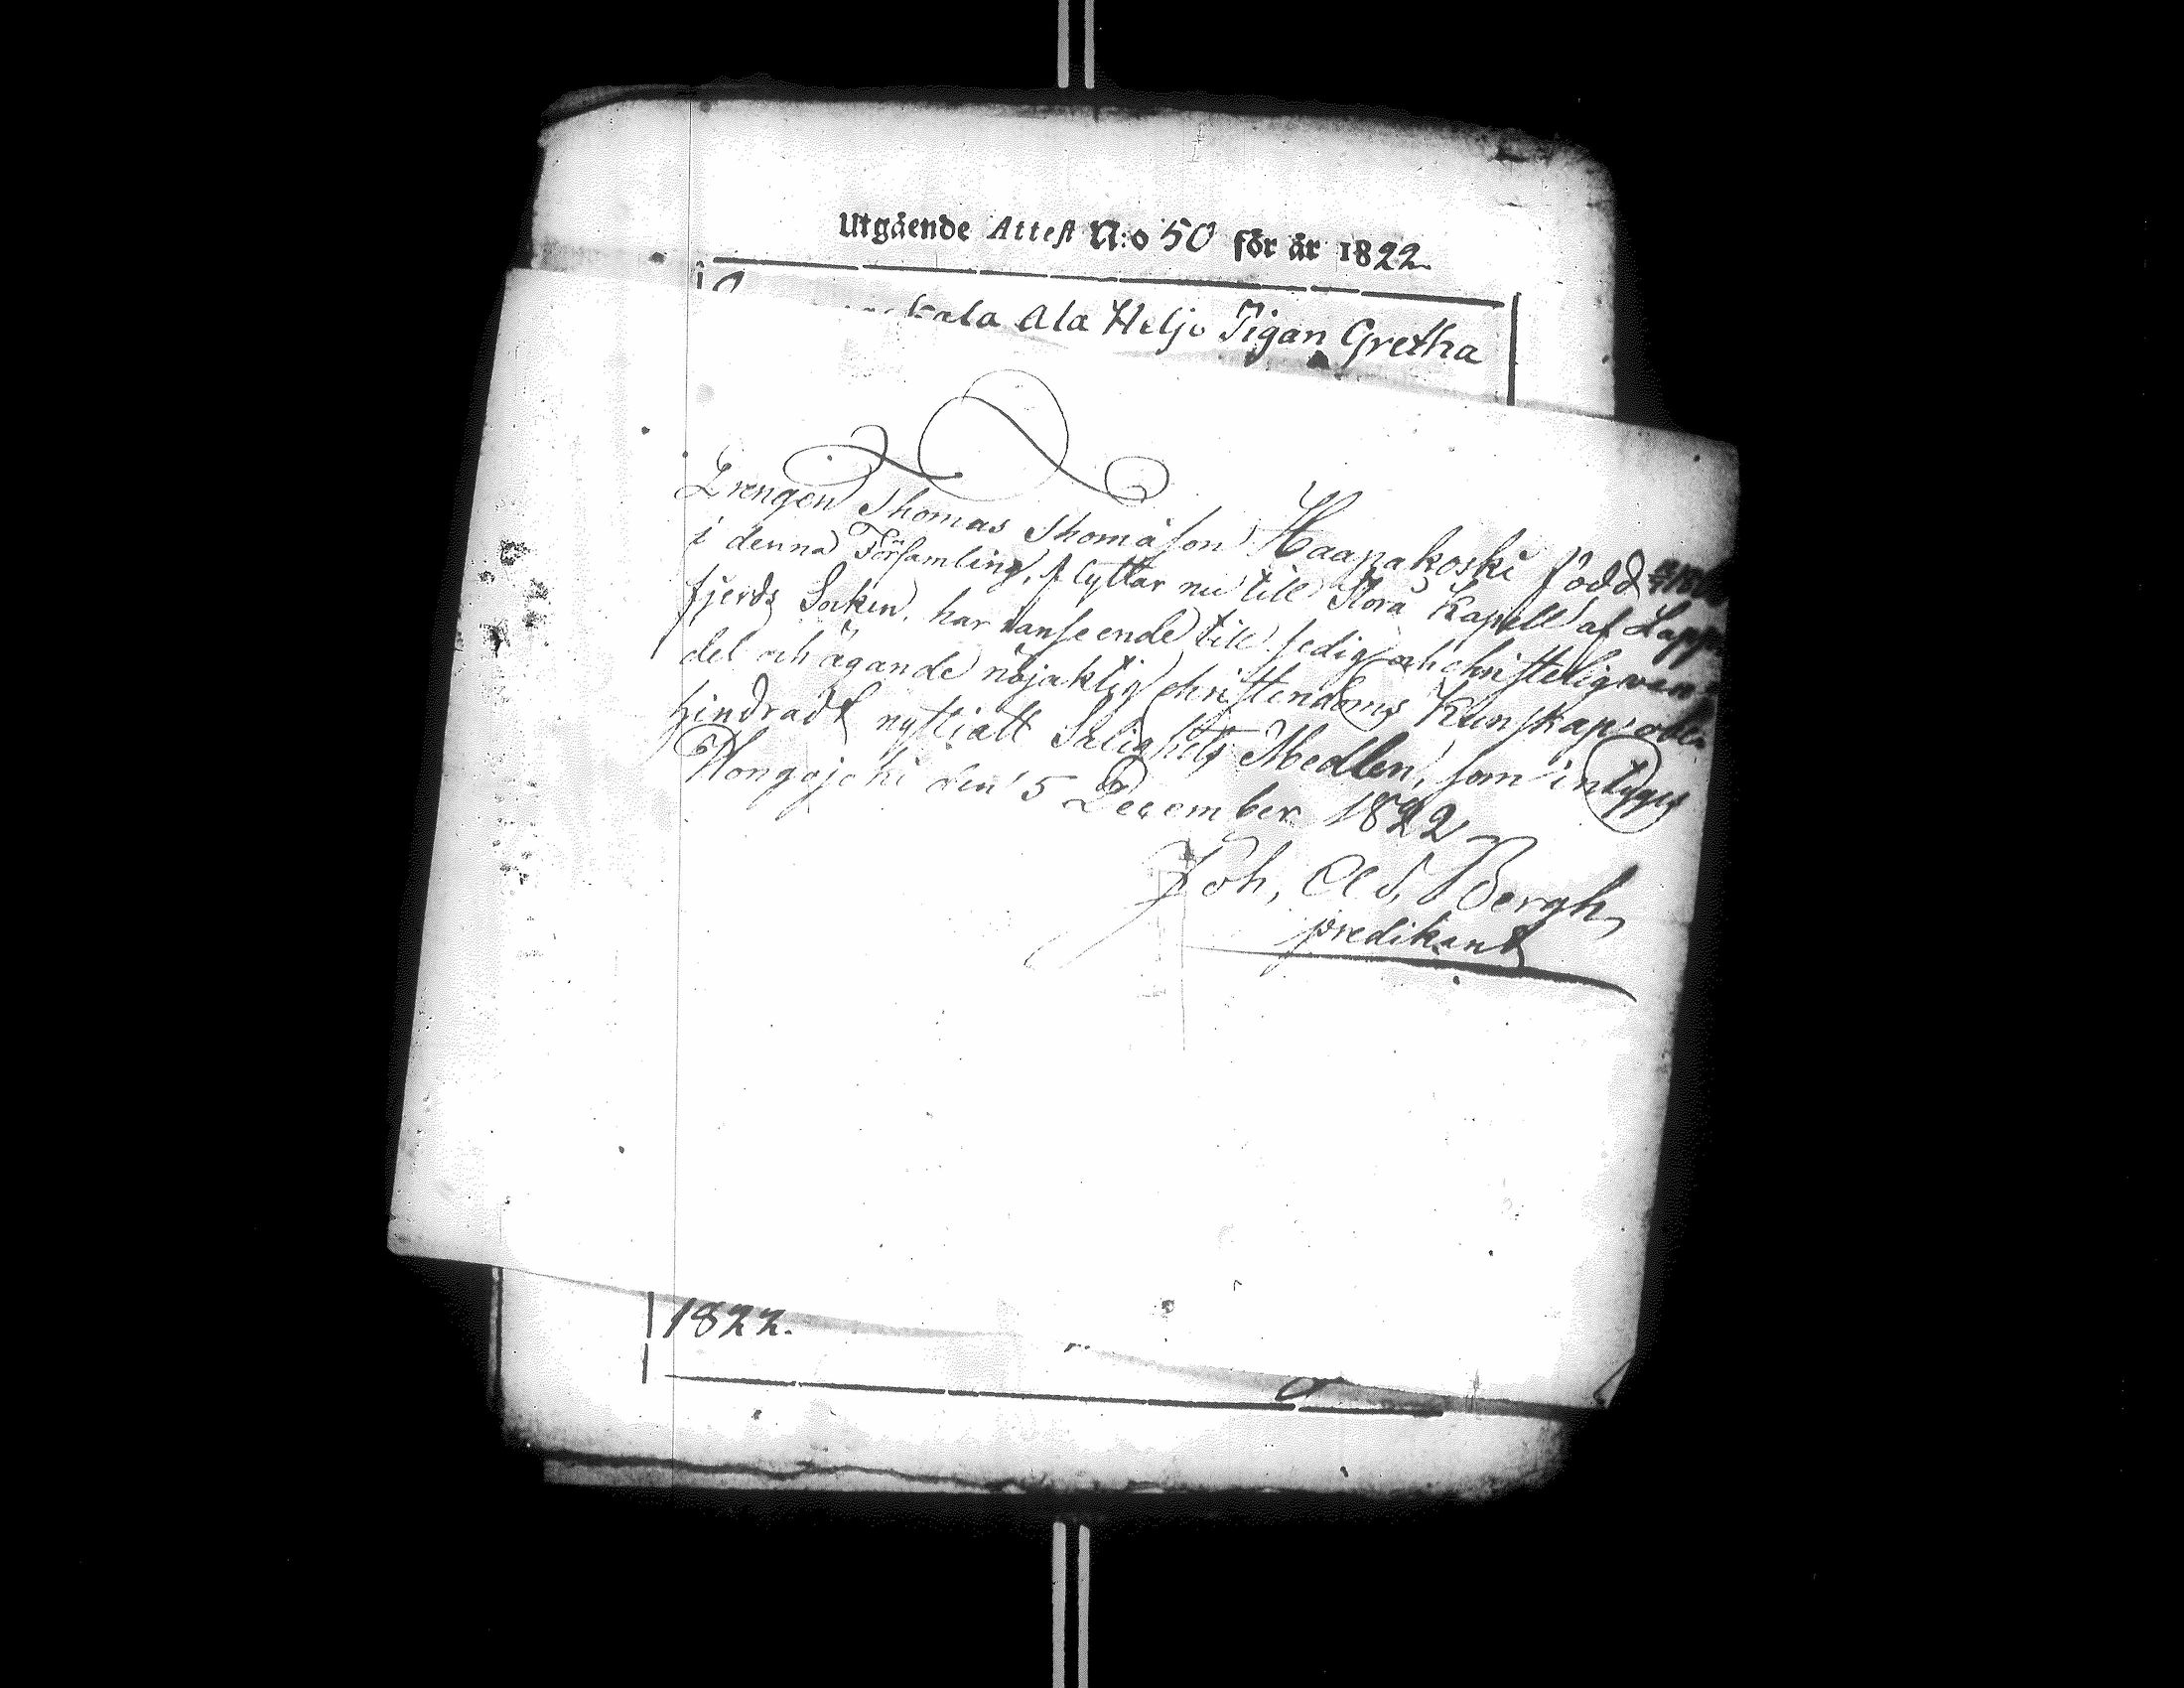 Utgående Attest N:o 50 för år 1822.
kala Ala Heljo Pigan Gretha
Drengen Thomas Thomasson Haapakoski född
i denna Församling, flyttar nu till Storå Kapell af Lapp
fjerds Socken, har i anseende till sedig och christelig van
del och ägande nöjaktig christendoms Kunskap, obe
hindradt nyttjatt Salighets Medlen, som intygas
Hongojoki den 5 December 1822
Joh, Ad, Bergh,
predikant
1822.